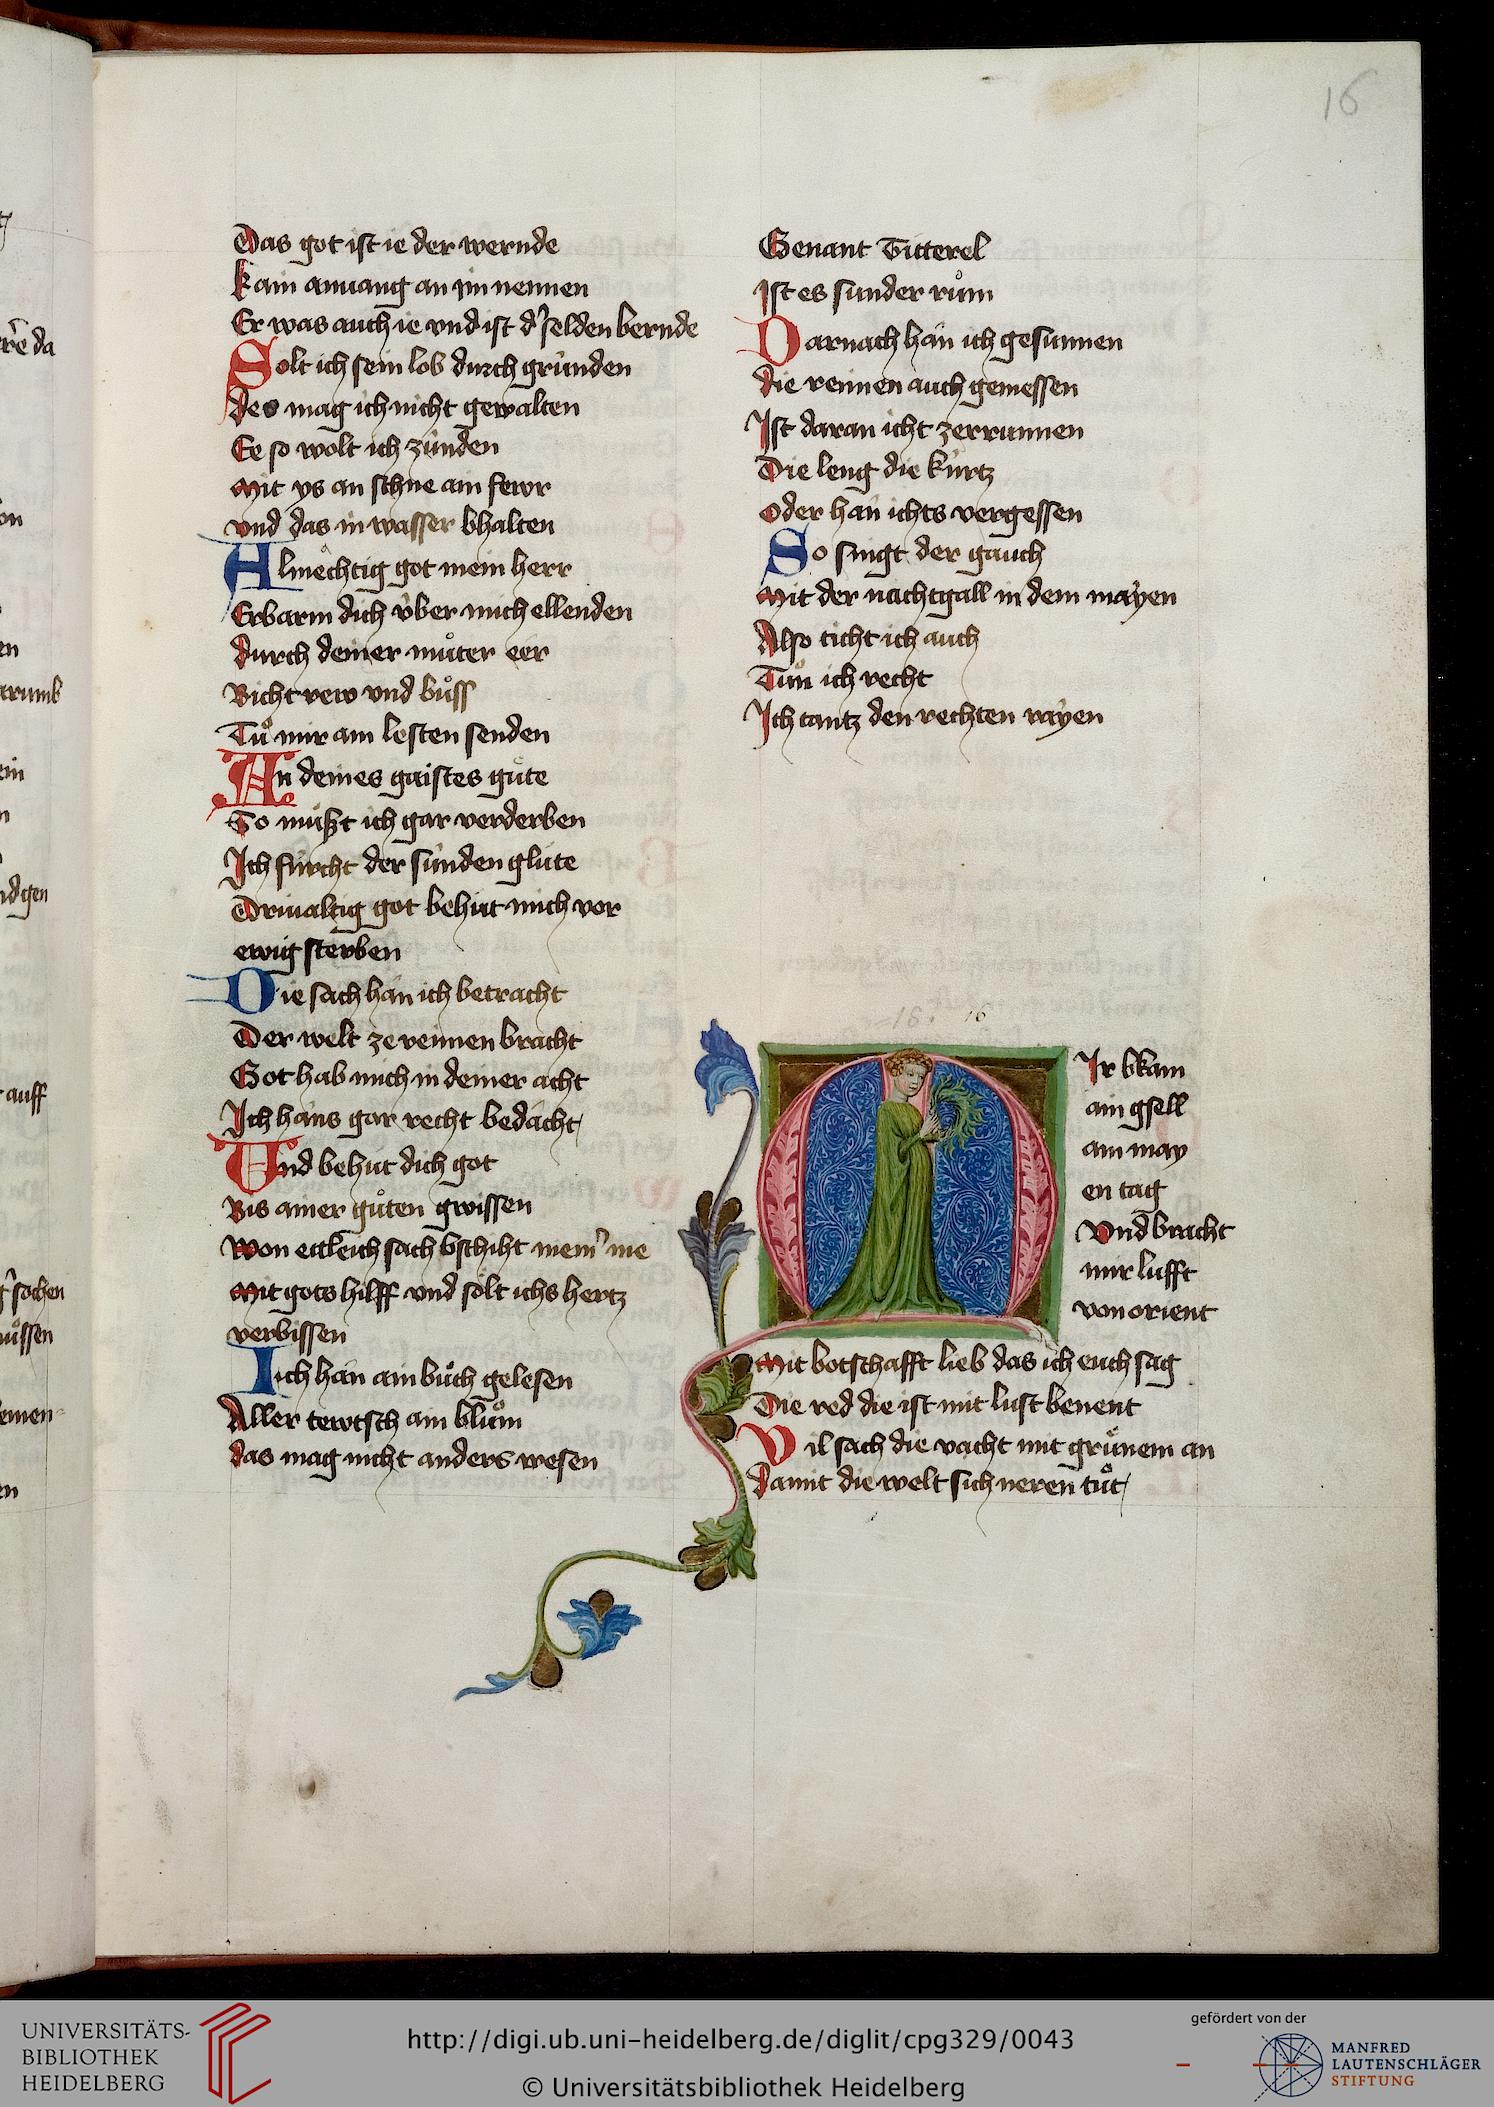 16
Das got ist ie der wernde
kain anuang an jm nennen
Er was auch ie vnd ist d' selden bernde
Solt ich sein lob durch gründen
des mag ich nicht gewalten
Ee so wolt ich zünden
Mit ys an schne ain fewr
vnd das in wasser bhalten
Almëchtig got mein herr
Erbarm dich v̈ber mich ellenden
durch deiner muͦter eer
Bicht rew vnd buͦss
Tuͦ mir am lesten senden
An deines gaistes guͤte
So müßt ich gar verderben
Ich fürcht der sünden glüte
Drivaltig got behüt mich vor
ewig sterben
Die sach hän ich betracht
Der welt ze reimen bracht
Got hab mich in deiner acht
Ich häns gar recht bedächt
Vnd behüt dich got
Bis ainer guͦten gwissen
Won ettleich sach bschiht mein' me
Mit gots hilff vnd solt ichs hertz
verbissen
Ich hän ain buͦch gelesen
Aller tewtsch ain bluͦm
das mag nicht anders wesen
Genant Titterel
Ist es sunder ruͦm
Darnach hän ich gesunnen
die reimen auch gemessen
Ist daran icht zerrunnen
Die leng die kürtz
oder hän ichts vergessen
So singt der gauch
Mit der nachtgall in dem mayen
Also ticht ich auch
Tuͦn ich recht
Ich tantz den rechten rayen
18. 16
MIr bkam
ain gsell
am may
en tag
Vnd bracht
mir lufft
von orient
Mit botschafft lieb das ich euch sag
Die red die ist mit lust benent
Vil sach die vacht mit gruͤnem an
Damit die welt sich neren tuͦt
UNIVERSITÄTS-
BIBLIOTHEK
HEIDELBERG
http://digi.ub.uni-heidelberg.de/diglit/cpg329/0043
© Universitätsbibliothek Heidelberg
gefördert von der
MANFRED
LAUTENSCHLÄGER
STIFTUNG